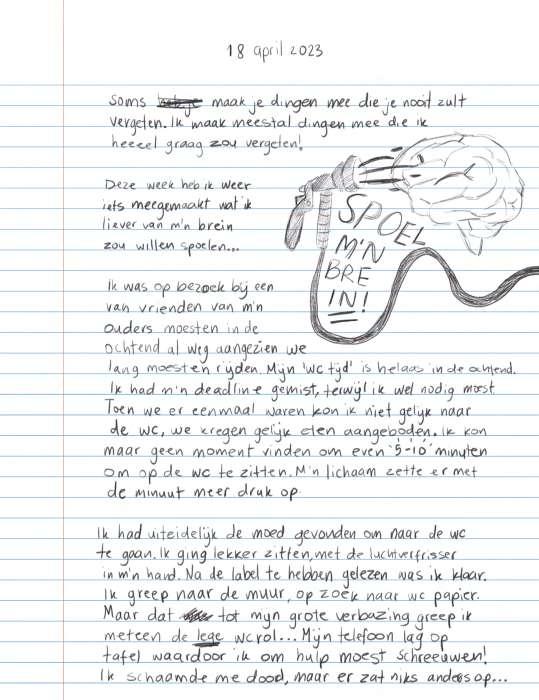 18 april 2023
Soms maak je dingen mee die je nooit zult
vergeten. Ik maak meestal dingen mee die ik
heeeel graag zou vergeten!
Deze week heb ik weer
iets meegemaakt wat ik
liever van m'n brein
zou willen spoelen...
SPOEL
M'N
BRE
IN!
Ik was op bezoek bij een
van vrienden van m'n
ouders moesten in de
ochtend al weg aangezien we
lang moesten rijden. Mijn 'wc tijd' is helaas in de ochtend.
Ik had m'n deadline gemist, terwijl ik wel nodig moest.
Toen we er eenmaal waren kon ik niet gelijk naar
de wc, we kregen gelijk eten aangeboden. Ik kon
maar geen moment vinden om even '5-10' minuten
om op de wc te zitten. M'n lichaam zette er met
de minuut meer druk op.
Ik had uiteidelijk de moed gevonden om naar de wc
te gaan. Ik ging lekker zitten, met de luchtverfrisser
in m'n hand. Na de label te hebben gelezen was ik klaar.
Ik greep naar de muur, op zoek naar wc papier.
Maar dat tot mijn grote verbazing greep ik
meteen de lege wcrol... Mijn telefoon lag op
tafel waardoor ik om hulp moest schreeuwen!
Ik schaamde me dood, maar er zat niks anders op...